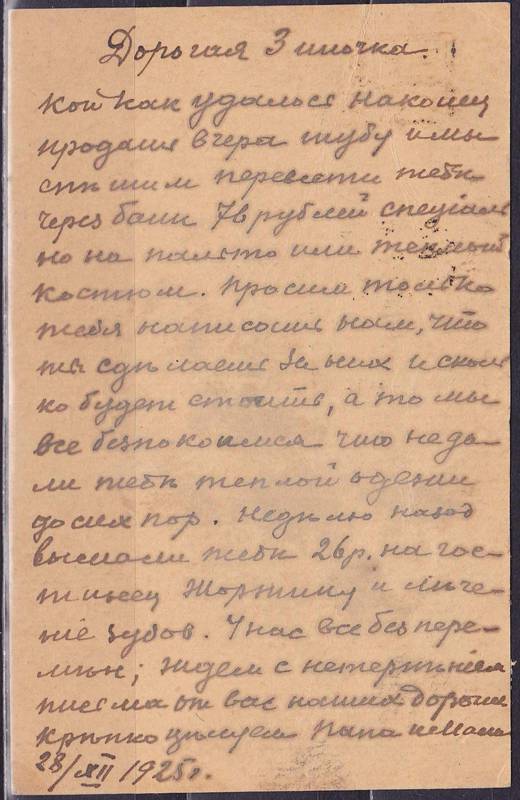 Дорогая Зиночка!
кой как удалось наконец
продать вчера шубу и мы
спѣшим перевести тебѣ
через банк 76 рублей спеціаль
но на пальто или теплый
костюм. Просим только
тебя написать нам, что
ты сдѣлаешь за них и сколь
ко будет стоить, а то мы
все безпокоимся что не да-
ли тебѣ теплой одежи
до сих пор. Недѣлю назад
выслали тебѣ 26 р. на гос-
тинец Жоржику и лѣче-
ніе зубов. У нас все без пере-
мѣн; ждем с нетерпѣніем
письма от вас наших дорогих
крѣпко цѣлуем Папа и Мама
28/XII 1925 г.